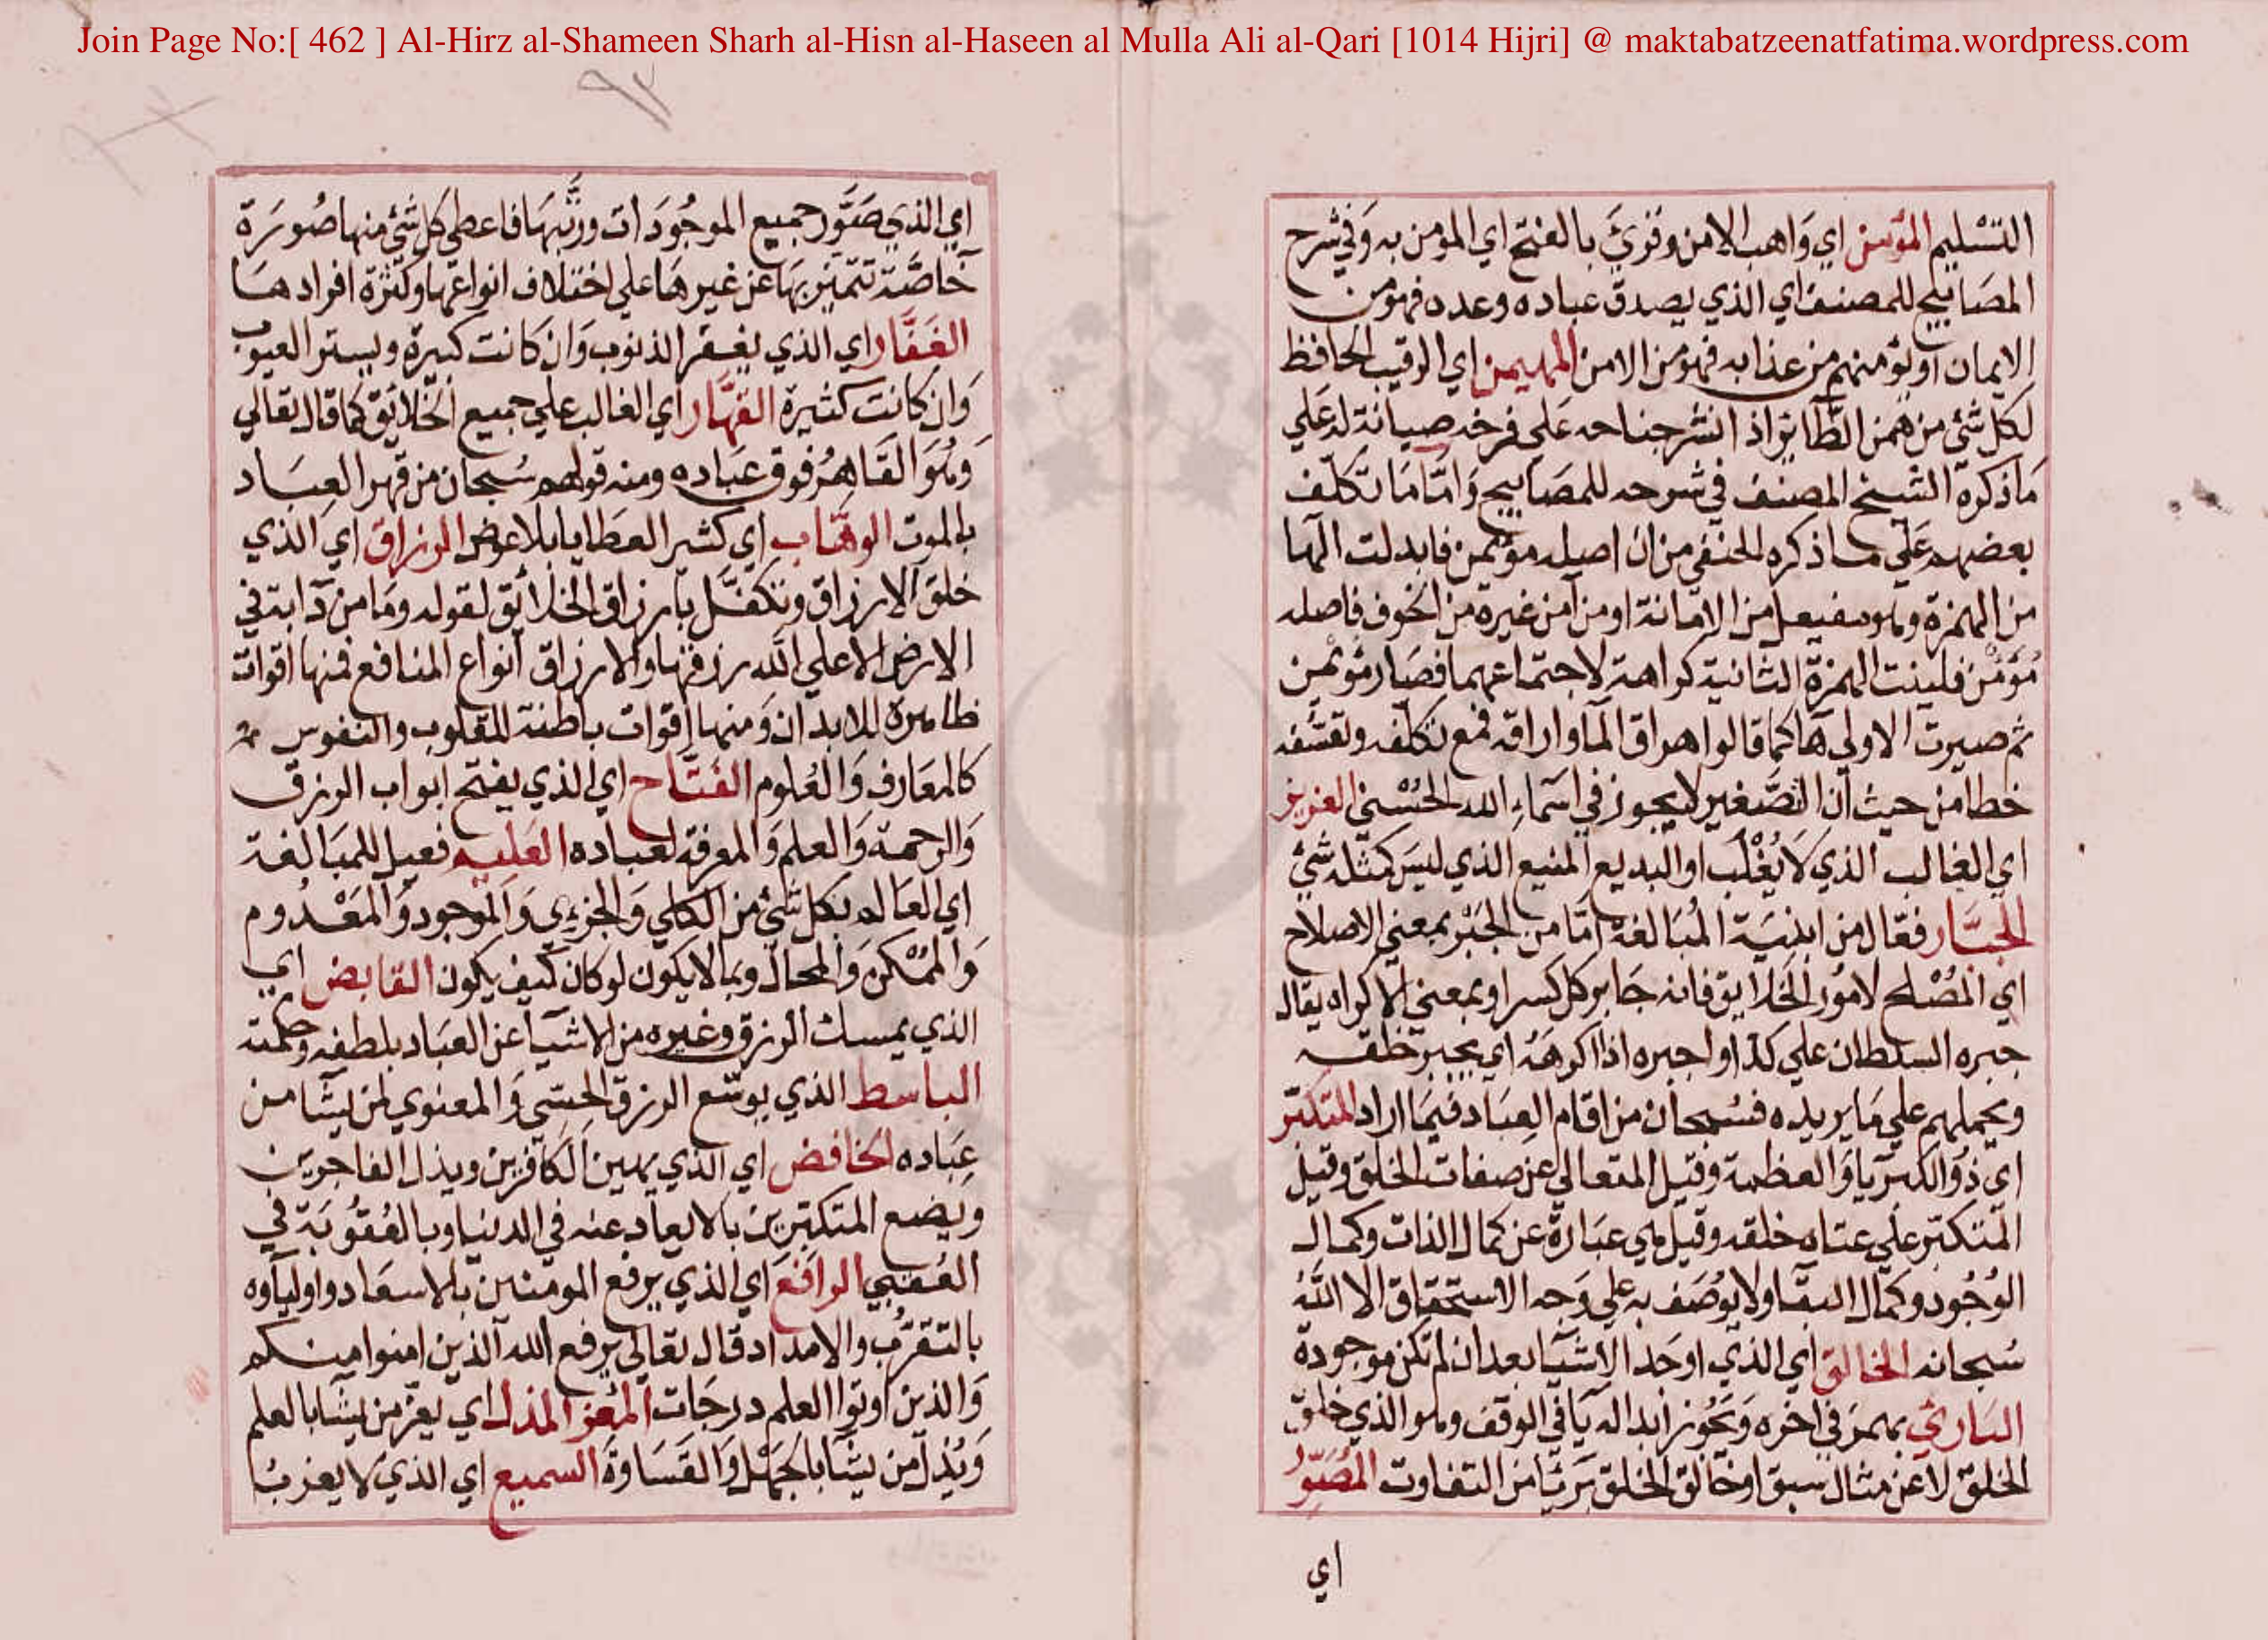 Join Page No:[ 462 ] Al-Hirz al-Shameen Sharh al-Hisn al-Haseen al Mulla Ali al-Qari [1014 Hijri] @ maktabatzeenatfatima.wordpress.com
التسليم المؤمن اي واهب الامن وقرئ بالفتح اي المومن به وفي شرح
المصابيح للمصنف اي الذي يصدق عباده وعده فهو من
الايمان او يؤمنهم من عذابه فهو من الامن المهيمن اي الرقيب الحافظ
لكل شئ من همن الطاير اذا نشر جناحه على فرخه صيانة له علي
ماذكره الشيخ المصنف في شرحه للمصابيح واما ما تكلف
بعضهم علي ما ذكره الحنفي من ان اصله مؤيمن فابدلت الها
من الهمزة وهو مفيعل من الامانة او من آمن غيره من الخوف فاصله
مؤَمن فلينت الهمزة الثانية كراهة لاجتماعهما فصار مؤيمن
ثم صيرت الاولي ها كما قالوا اهراق الما واراقه فمع تكلفه وتعسفه
خطا من حيث ان التصغير لا يجوز في اسماء الله الحسني العزيز
اي الغالب الذي لا يُغْلَب او البديع المنيع الذي ليس كمثله شئ
الجبار فعّال من ابنية المبالغة امّا من الجبر بمعني الاصلاح
اي المُصْلح لامُور الخلايق فانه جابر كل كسر او بمعني الاكراه يقال
جبره السلطان علي كذا او اجبره اذا اكرهه اي يجبر خلقه
ويحملهم علي ما يريده فسبحان من اقام العباد فيما اراد المتكبّر
اي ذُو الكبريا والعظمة وقيل المتعالي عن صفات الخلق وقيل
المتكبّر علي عتاه خلقه وقيل هي عبارة عن كمال الذات وكمال
الوُجُود وكمال البقا ولا يوصف به علي وجه الاستحقاق الا اللّٰه
سُبحانه الخالق اي الذي اوجد الاشيا بعد ان لم تكن موجودة
الباريُ بهمز في اخره ويجوز ابداله يا في الوقف وهو الذي خلق
الخلق لا عن مثال سبق او خالق الخلق بريئا من التفاوت المصوّر
اي
اي الذي صوّر جميع الموجودات ورتّبها فاعطي كل شئ منها صُورَة
خاصّة تتميّز بها عن غيرها علي اختلاف انواعها وكثرة افرادها
الغفّار اي الذي يغفر الذنوب وان كانت كبيرة ويستر العيوب
وان كانت كثيرة القهّار اي الغالب علي جميع الخلائق كما قال تعالي
وهُوَ القاهرُ فوق عباده ومنه قولهم سُبحان من قهر العباد
بالموت الوهّاب اي كثير العطايا بلا عوض الرزاق اي الذي
خلق الارزاق وتكفّل بارزاق الخلائق لقوله وما من دابة في
الارض الا علي اللّه رزقها والارزاق انواع المنافع فمنها اقوات
ظاهرة للابدان ومنها اقوات باطنة للقلوب والنفوس
كالمعارف والعُلوم الفتّاح اي الذي يفتح ابواب الرزق
والرحمة والعلم والمعرفة لعباده العليم فعيل للمبالغة
اي العالم بكل شئ من الكلي والجزءي والموجود والمعدُوم
والممكن والمحال وبما لا يكون لو كان كيف يكون القابض اي
الذي يمسك الرزق وغيره من الاشيا عن العباد بلطفه وحكمته
الباسط الذي يوسّع الرزق الحسّي والمعنوي لمن يشا من
عباده الخافض اي الذي يهين الكافرين ويذل الفاجرين
ويضع المتكبّرين بالابعاد عنه في الدنيا وبالعُقُوبة في
العُقبي الرافع اي الذي يرفع المومنين بالاسعاد واولياوه
بالتقرُّب والامداد قال تعالي يرفع الله الذين امنوا منكم
والذين اوتوا العلم درجات المُعز المذل اي يعز من يشا بالعلم
ويُذل من يشا بالجهل والقساوة السميع اي الذي لا يعزب